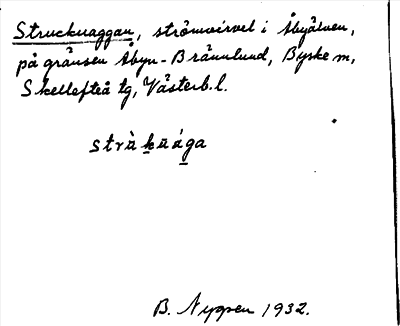 Struckvaggan, strömvirvel i Åbyälven,
på gränsen Åbyn-Brännlund, Byske m,
Skellefteå tg, Västerb. l.
strùkuága
B. Nyppen 1932.